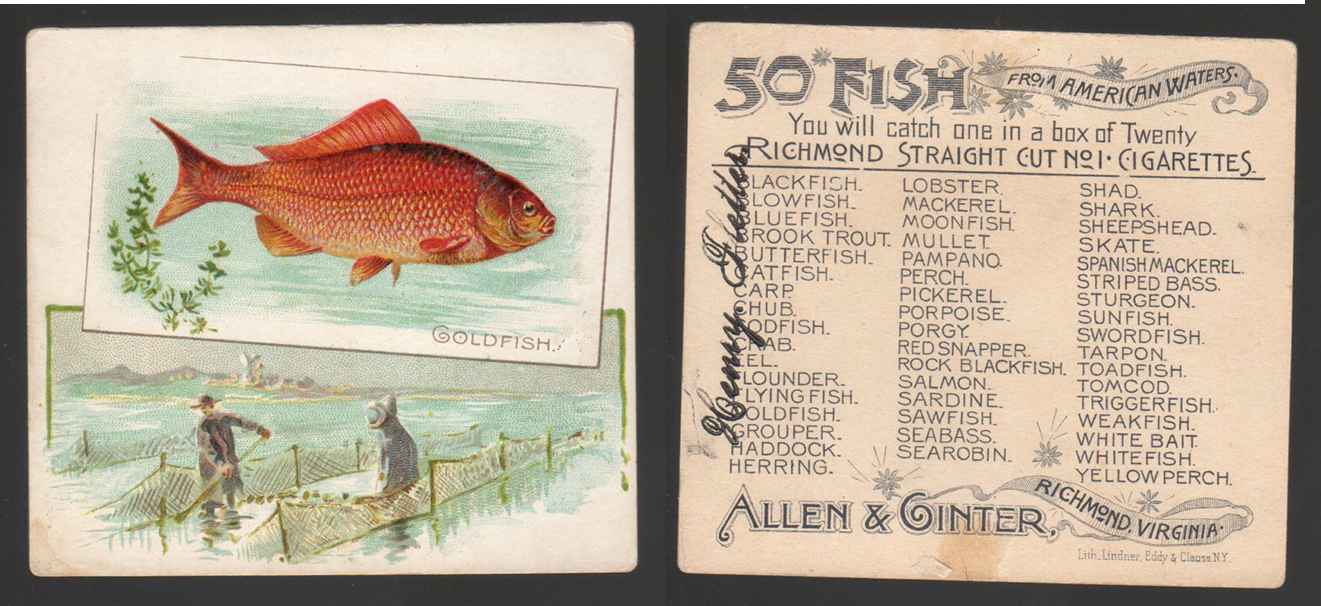 GOLDFISH.
50 FISH
FROM AMERICAN WATERS.
You will catch one in a box of Twenty
RICHMOND STRAIGHT CUT No 1. CIGARETTES.
BLACKFISH.
BLOWFISH.
BLUEFISH.
BROOK TROUT.
BUTTERFISH.
CATFISH.
CARP.
CHUB.
CODFISH.
CRAB.
EEL.
FLOUNDER.
FLYING FISH.
GOLDFISH.
GROUPER.
HADDOCK.
HERRING.
LOBSTER.
MACKEREL.
MOONFISH.
MULLET.
PAMPANO.
PERCH.
PICKEREL.
PORPOISE.
PORGY.
RED SNAPPER.
ROCK BLACKFISH.
SALMON.
SARDINE.
SAWFISH.
SEABASS.
SEAROBIN.
SHAD.
SHARK.
SHEEPSHEAD.
SKATE.
SPANISH MACKEREL.
STRIPED BASS.
STURGEON.
SUNFISH.
SWORDFISH.
TARPON.
TOADFISH.
TOMCOD.
TRIGGERFISH.
WEAKFISH.
WHITE BAIT.
WHITEFISH.
YELLOW PERCH.
ALLEN & GINTER,
RICHMOND, VIRGINIA.
Lith. Lindner, Eddy & Clauss N.Y.